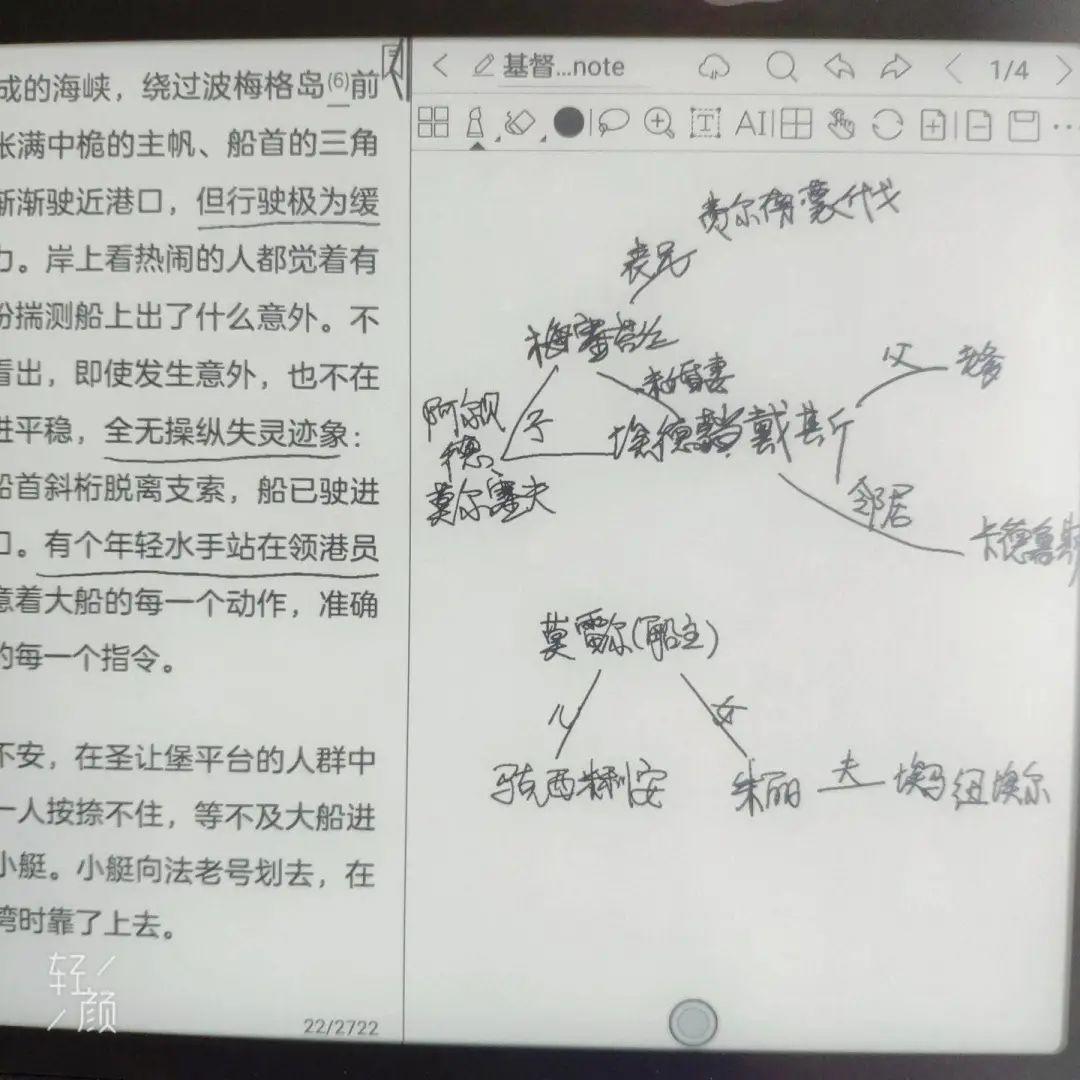 成的海峡，绕过波梅格岛(6)前
张满中桅的主帆、船首的三角
渐渐驶近港口，但行驶极为缓
力。岸上看热闹的人都觉着有
纷揣测船上出了什么意外。不
看出，即使发生意外，也不在
进平稳，全无操纵失灵迹象：
船首斜桁脱离支索，船已驶进
口。有个年轻水手站在领港员
意着大船的每一个动作，准确
的每一个指令。
不安，在圣让堡平台的人群中
一人按捺不住，等不及大船进
小艇。小艇向法老号划去，在
湾时靠了上去。
22/2722
轻
颜
基督...note
1/4
T
AI
费尔南·蒙代戈
梅塞苔丝
未婚妻
父
老爹
阿尔贝
德·
莫尔塞夫
子
埃德蒙·戴斯
邻居
卡德鲁斯
莫雷尔(船主)
儿
女
马克西米利安
朱丽
夫
埃马纽埃尔